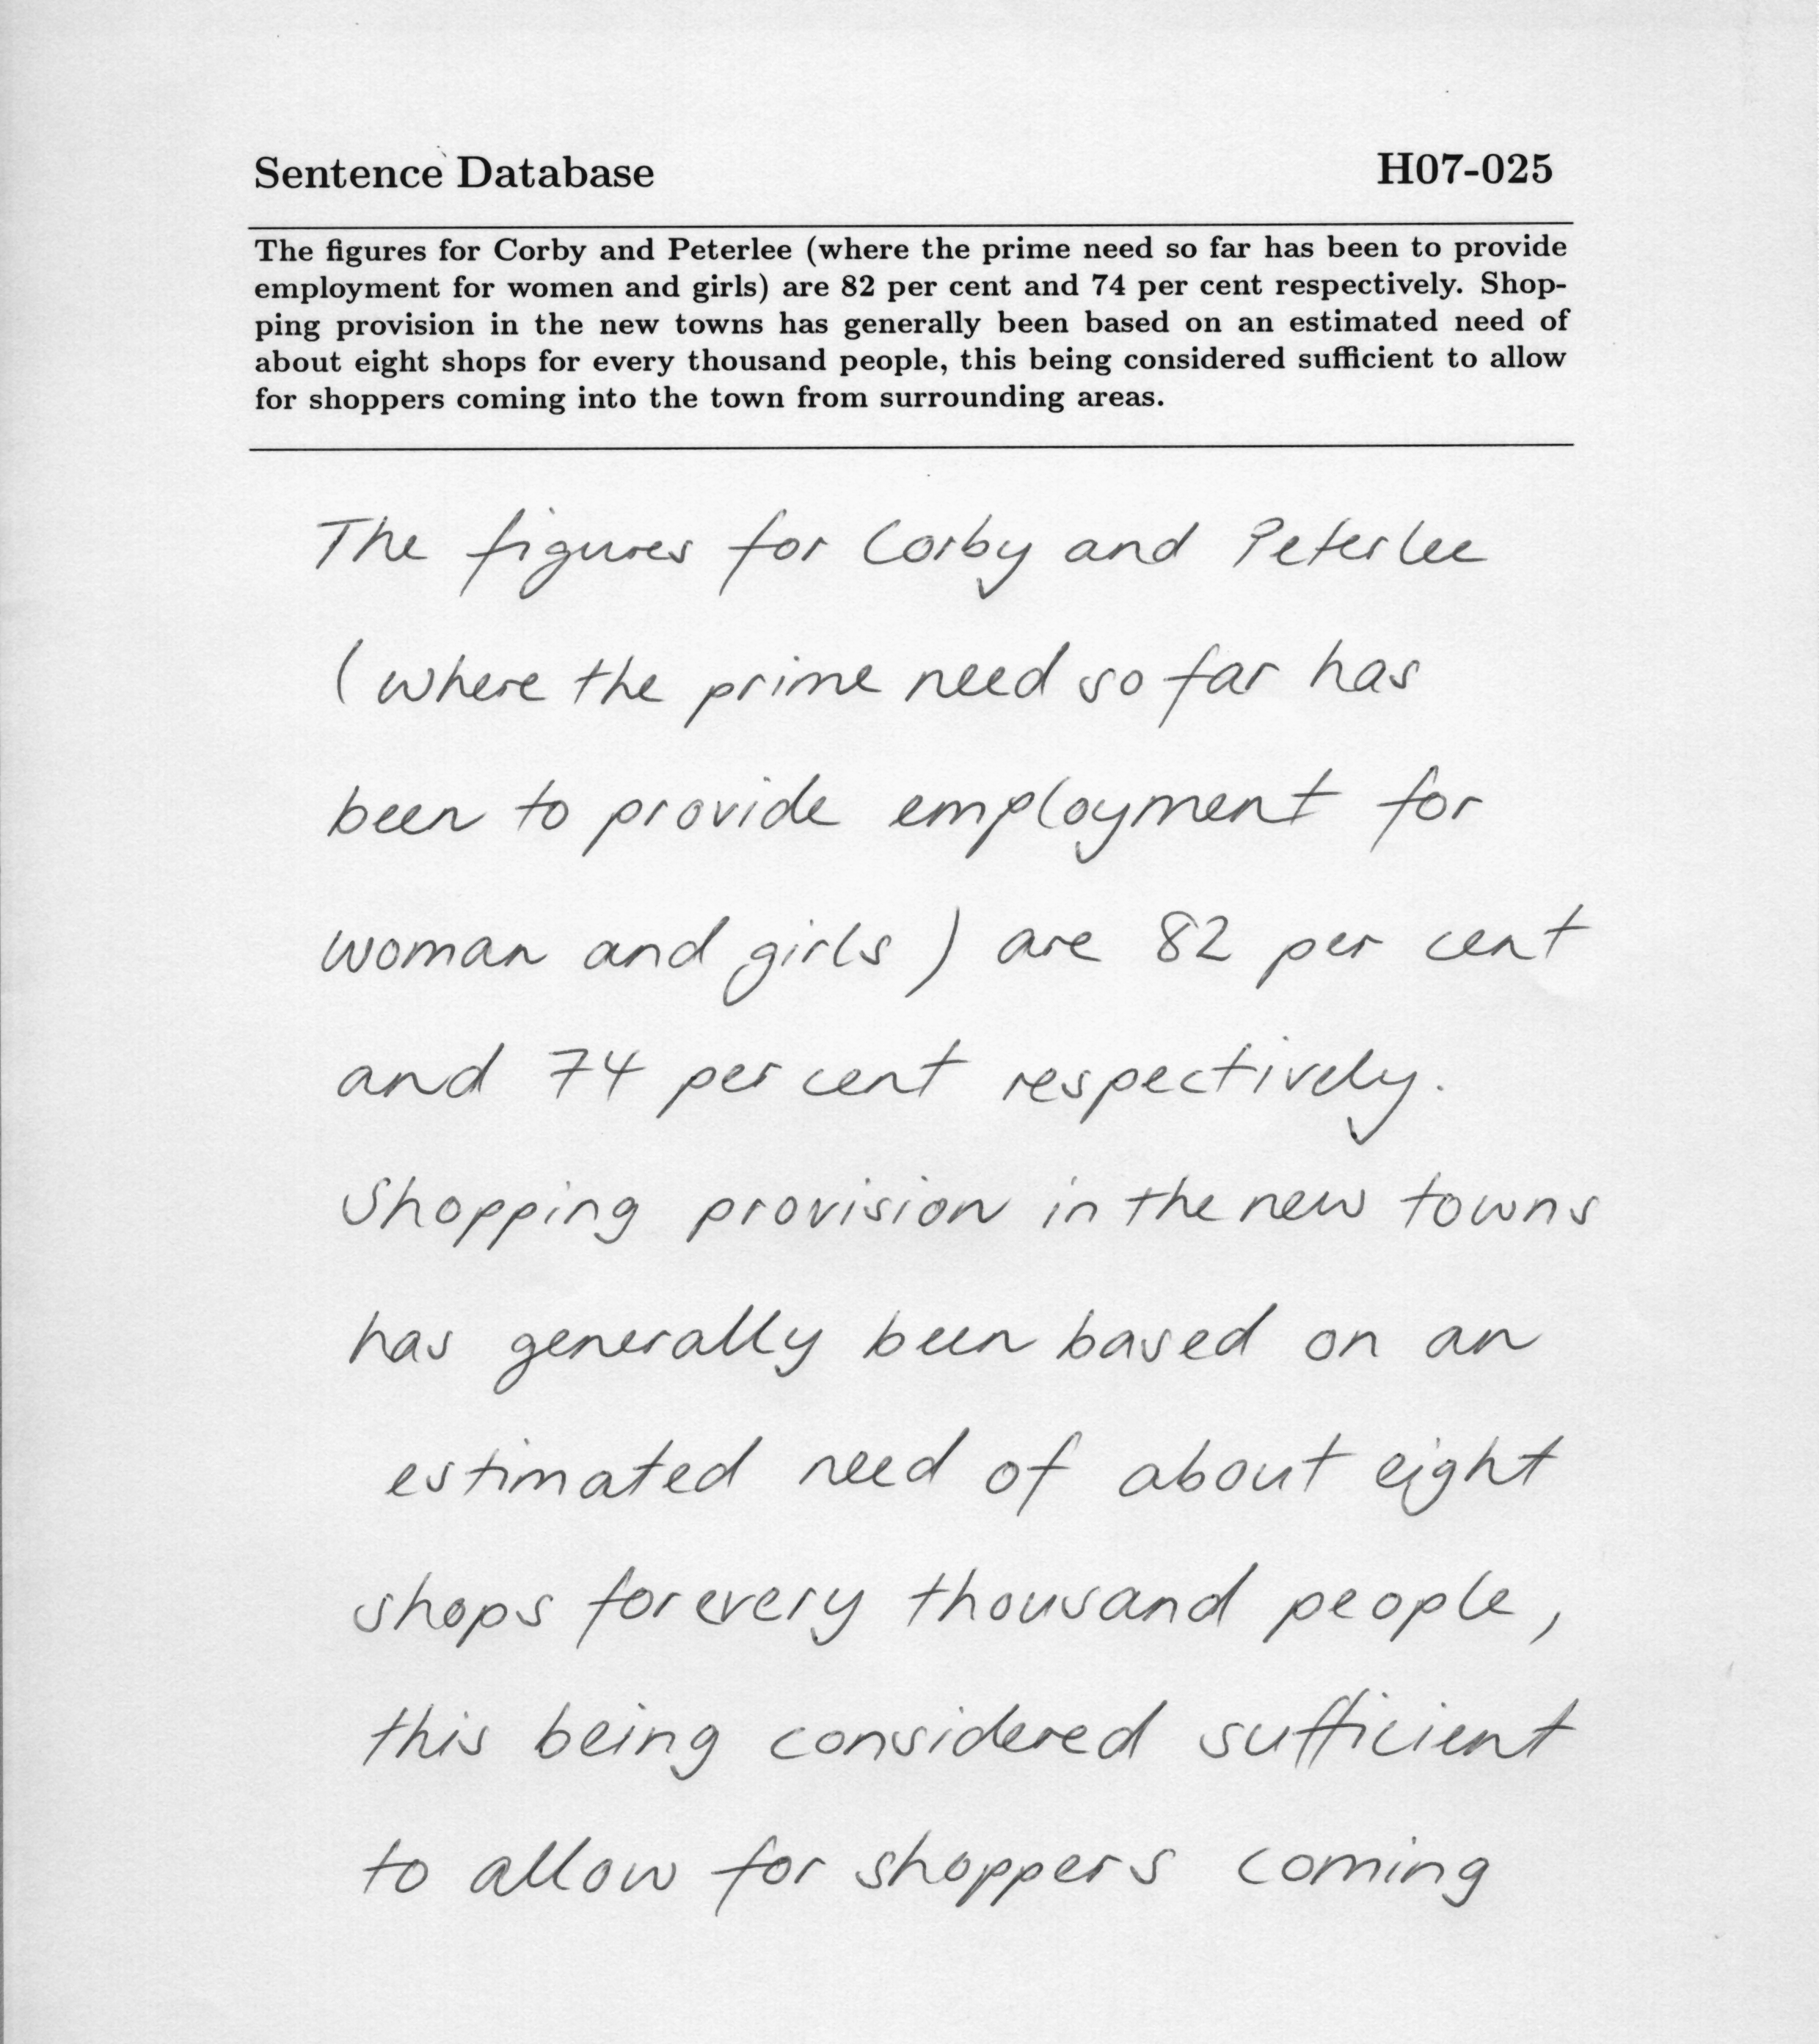 Sentence Database H07-025
The figures for Corby and Peterlee (where the prime need so far has been to provide
employment for women and girls) are 82 per cent and 74 per cent respectively. Shop-
ping provision in the new towns has generally been based on an estimated need of
about eight shops for every thousand people, this being considered sufficient to allow
for shoppers coming into the town from surrounding areas.
The figures for Corby and Peterlee
(where the prime need so far has
been to provide employment for
woman and girls) are 82 per cent
and 74 per cent respectively.
Shopping provision in the new towns
has generally been based on an
estimated need of about eight
shops for every thousand people,
this being considered sufficient
to allow for shoppers coming